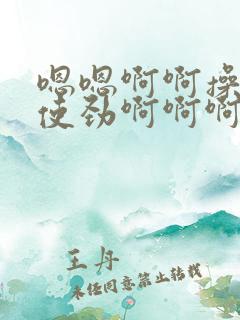 嗯嗯啊啊操
使劲啊啊啊
王丹
未经同意禁止转载